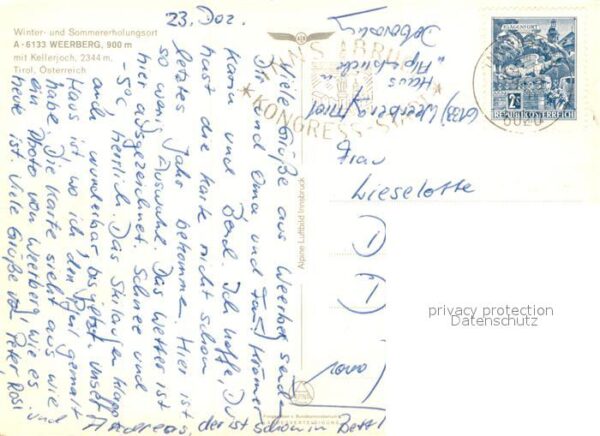 Winter- und Sommererholungsort
A-6133 WEERBERG, 900 m
mit Kellerjoch, 2344 m,
Tirol, Österreich
23. Dez.
Viele Grüße aus Weerberg senden
Dir und Oma und
Karin und Bernd. Ich hoffe, Du
hast die Karte nicht schon
letztes Jahr bekommen. Hier ist
so wenig Auswahl. Das Wetter ist
hier ausgezeichnet. Schnee und
-5°C herrlich. Das Skilaufen klappt
auch wunderbar bis jetzt. Unser
Haus ist wo ich den Pfeil gemalt
habe. Die Karte sieht aus wie
ein Photo von Weerberg, wie es
heute ist. Viele Grüße von Peter, Rosi
und Andreas, der ist schon im Bett!
Alpine Luftbild Innsbruck
Haus "Alpenblick"
(6133) Weerberg/Tirol
INNSBRUCK
KONGRESS-
6020
KLAGENFURT
2S
REPUBLIK ÖSTERREICH
Frau
Lieselotte
privacy protection
Datenschutz